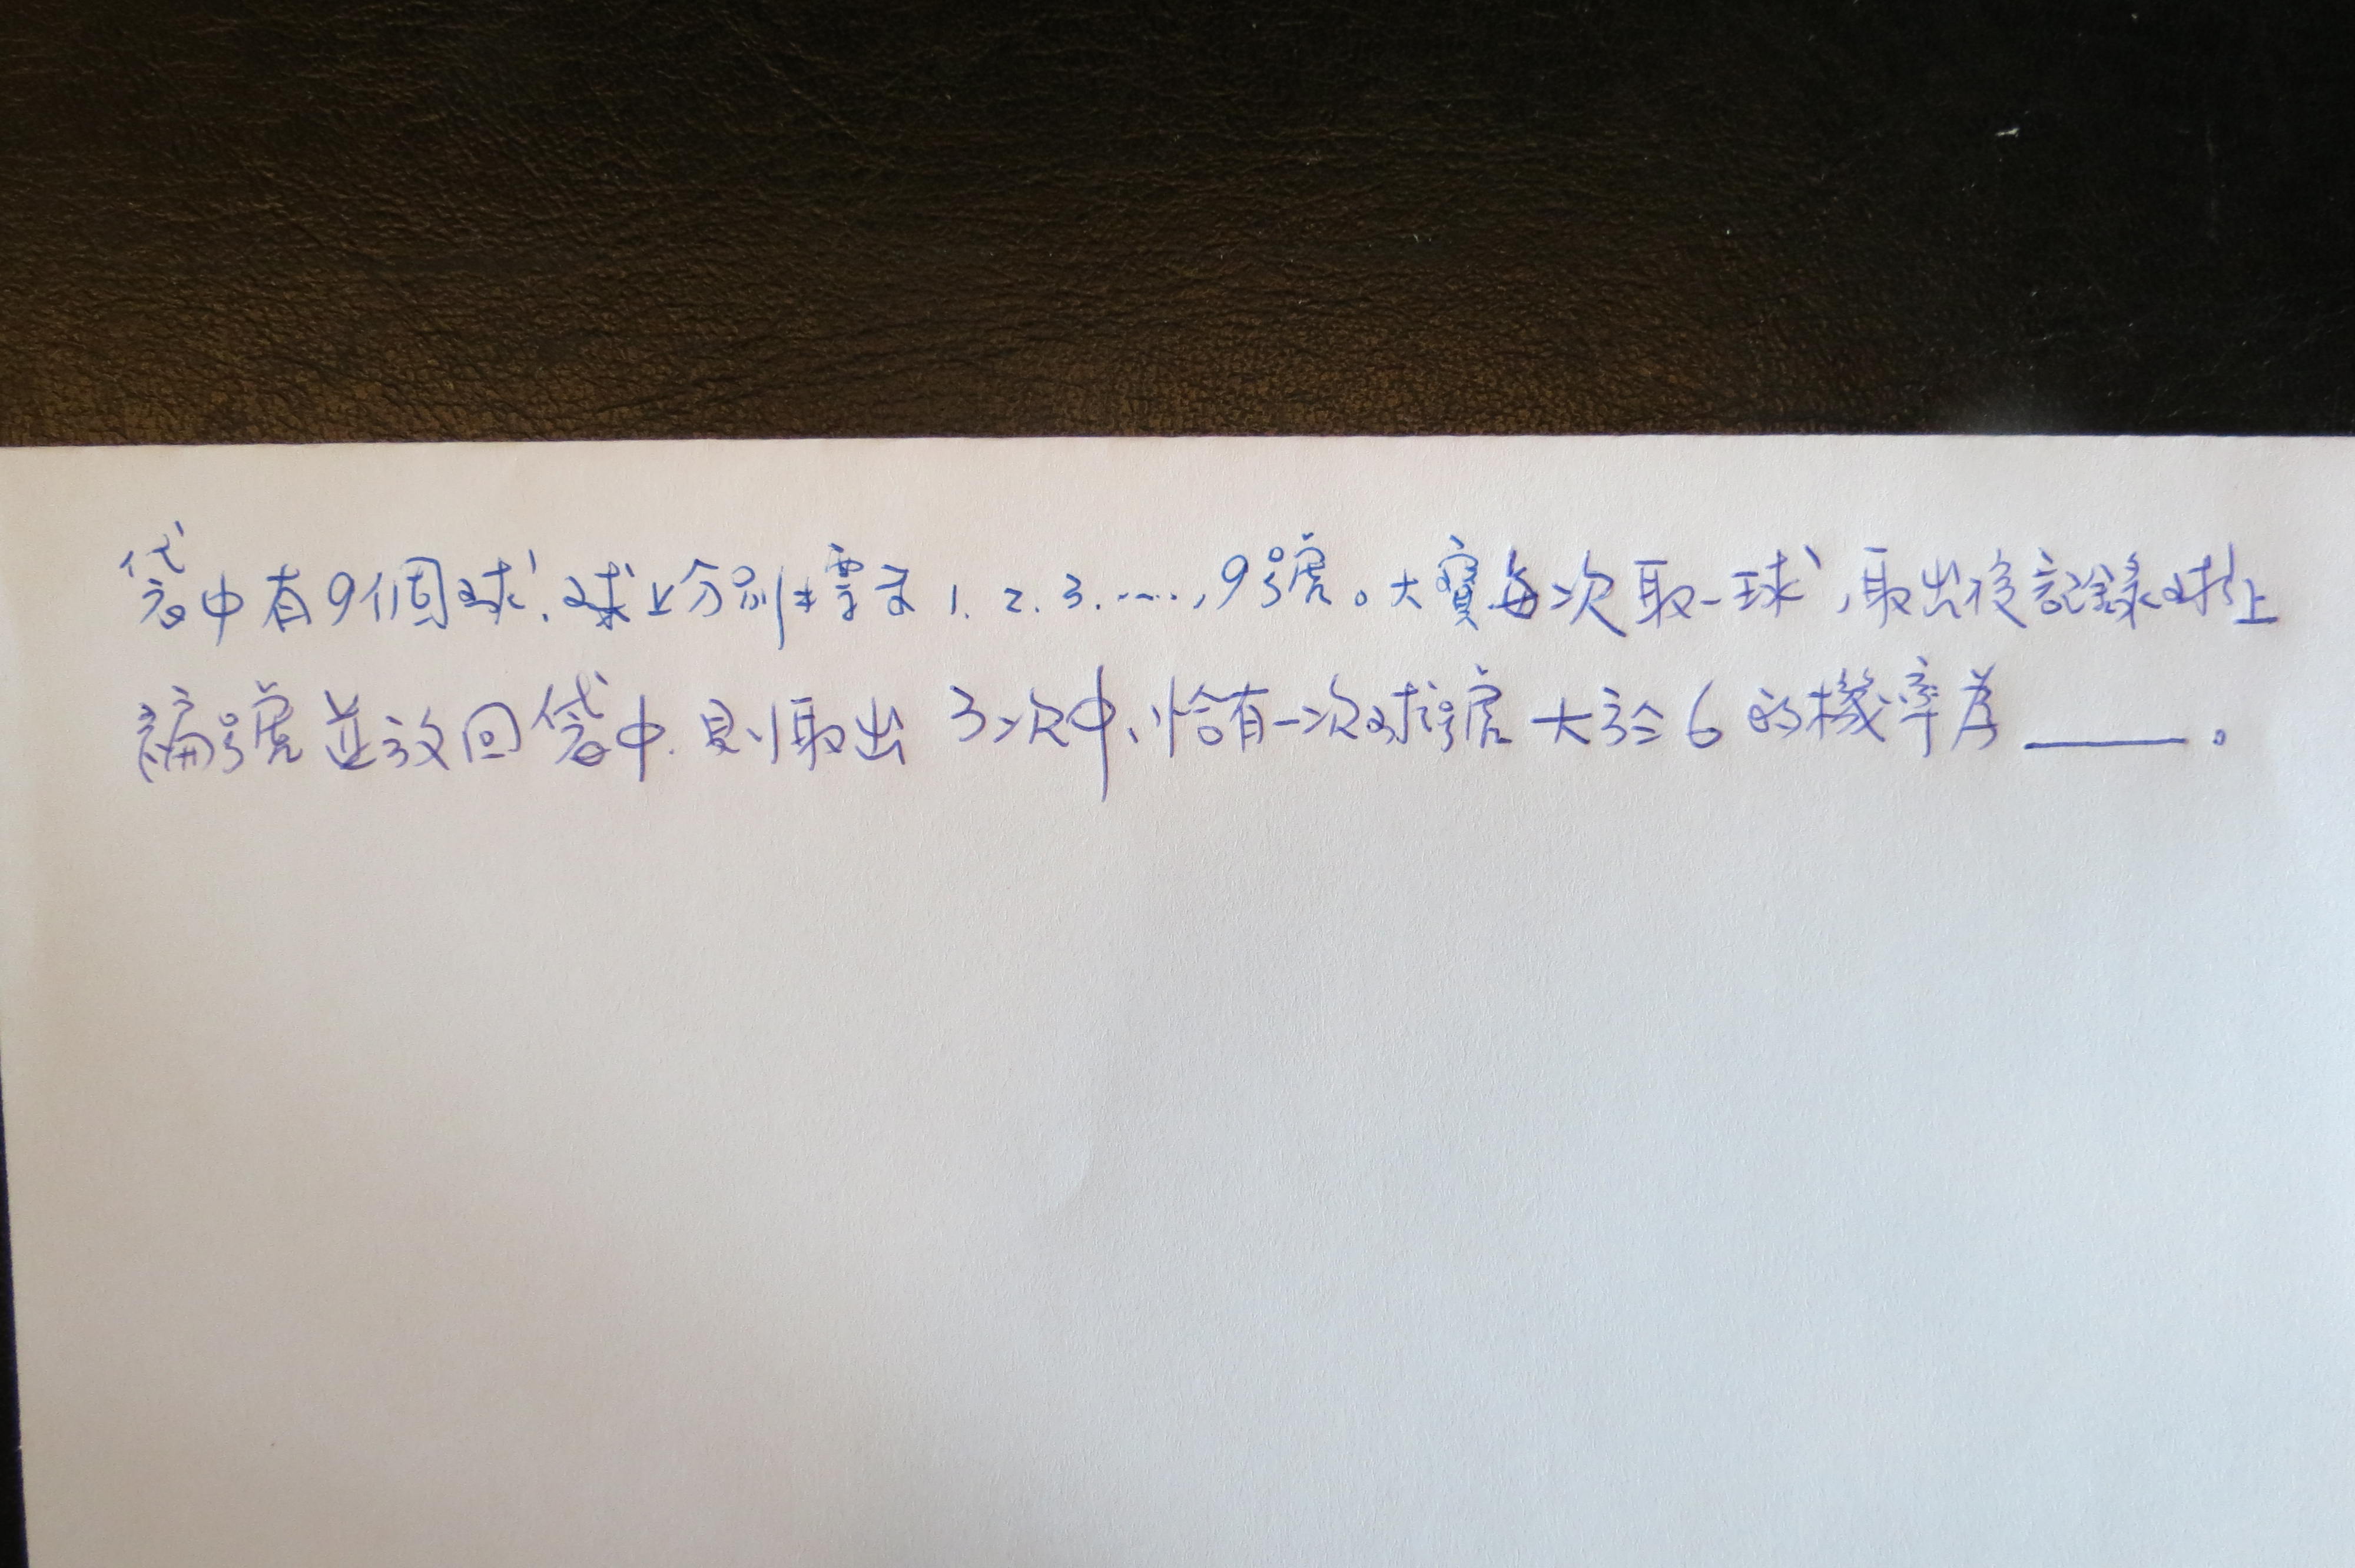 袋中有9個球,球上分別標示1.2.3.....,9號。大寶每次取一球,取出後記錄球上
編號並放回袋中.則取出3次中,恰有一次球號大於6的機率為_____。